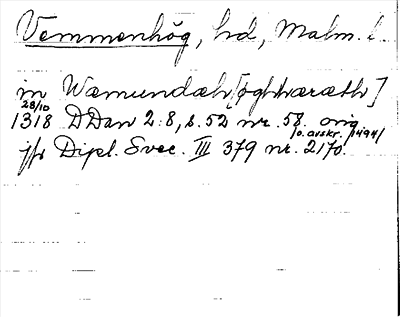 Vemmenhög, hd, Malm. l.
m Wæmundæh[øghhæræth]
28/10
1318 DDan 2:8, s. 52 nr. 58. orig.
/o. avskr. 1494/
jfr Dipl. Svec. III 379 nr. 2170.